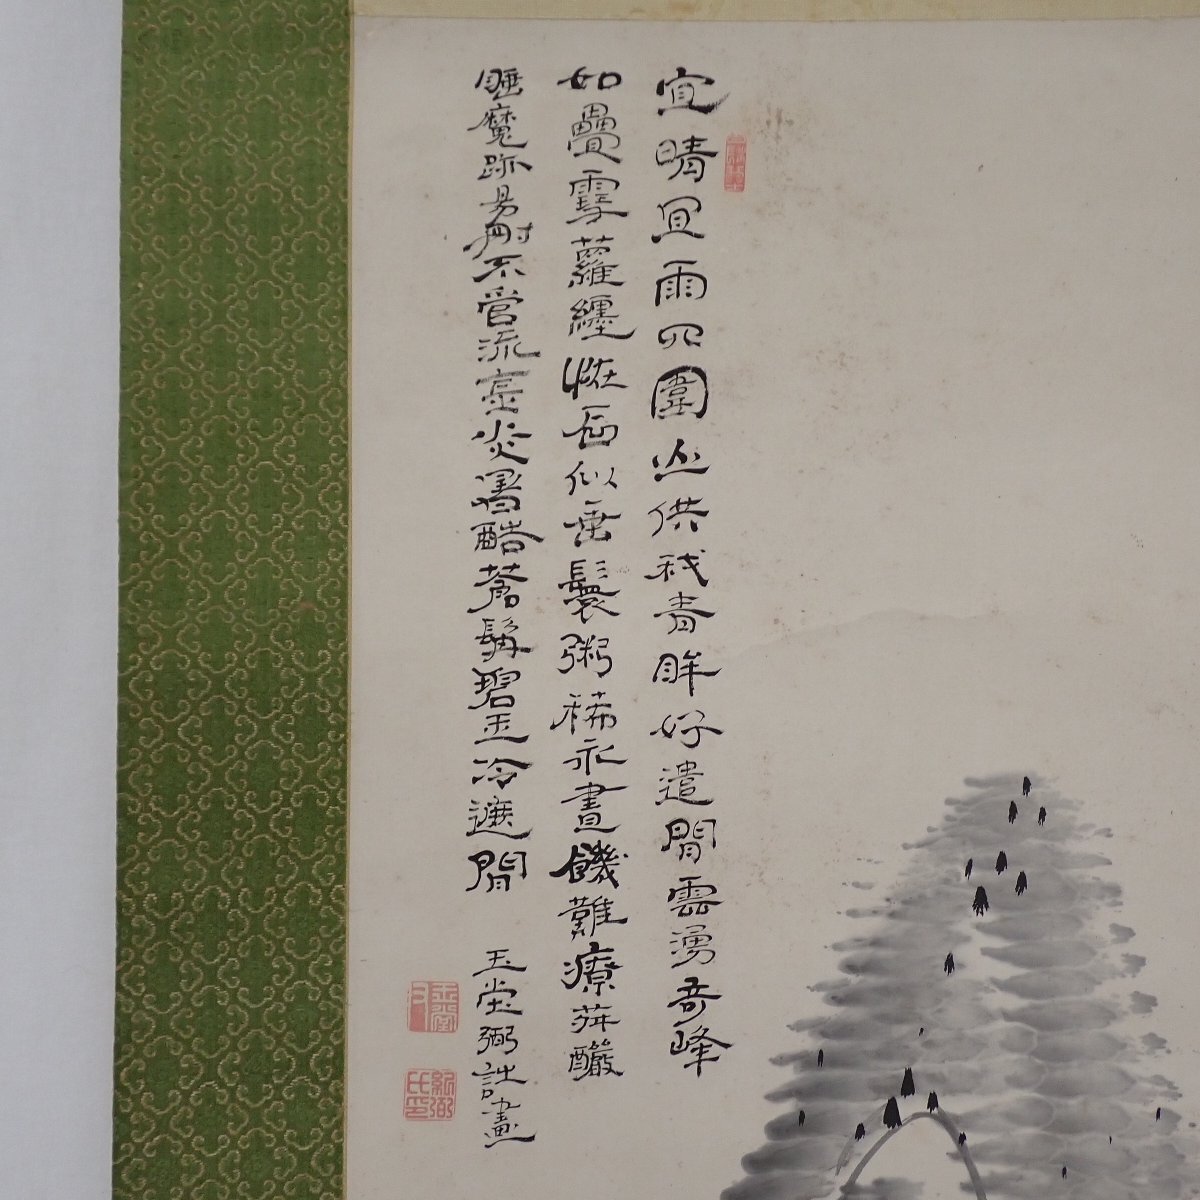 宜晴宜雨四圍山供我青眸好遣閒雲湧奇峰
如疊雪蘿纏恠石似垂鬟粥稀永晝饑難療荈釅
睡魔跡易刪不管流炎暑酷蒼髯碧玉冷閒
玉堂弼詩畫